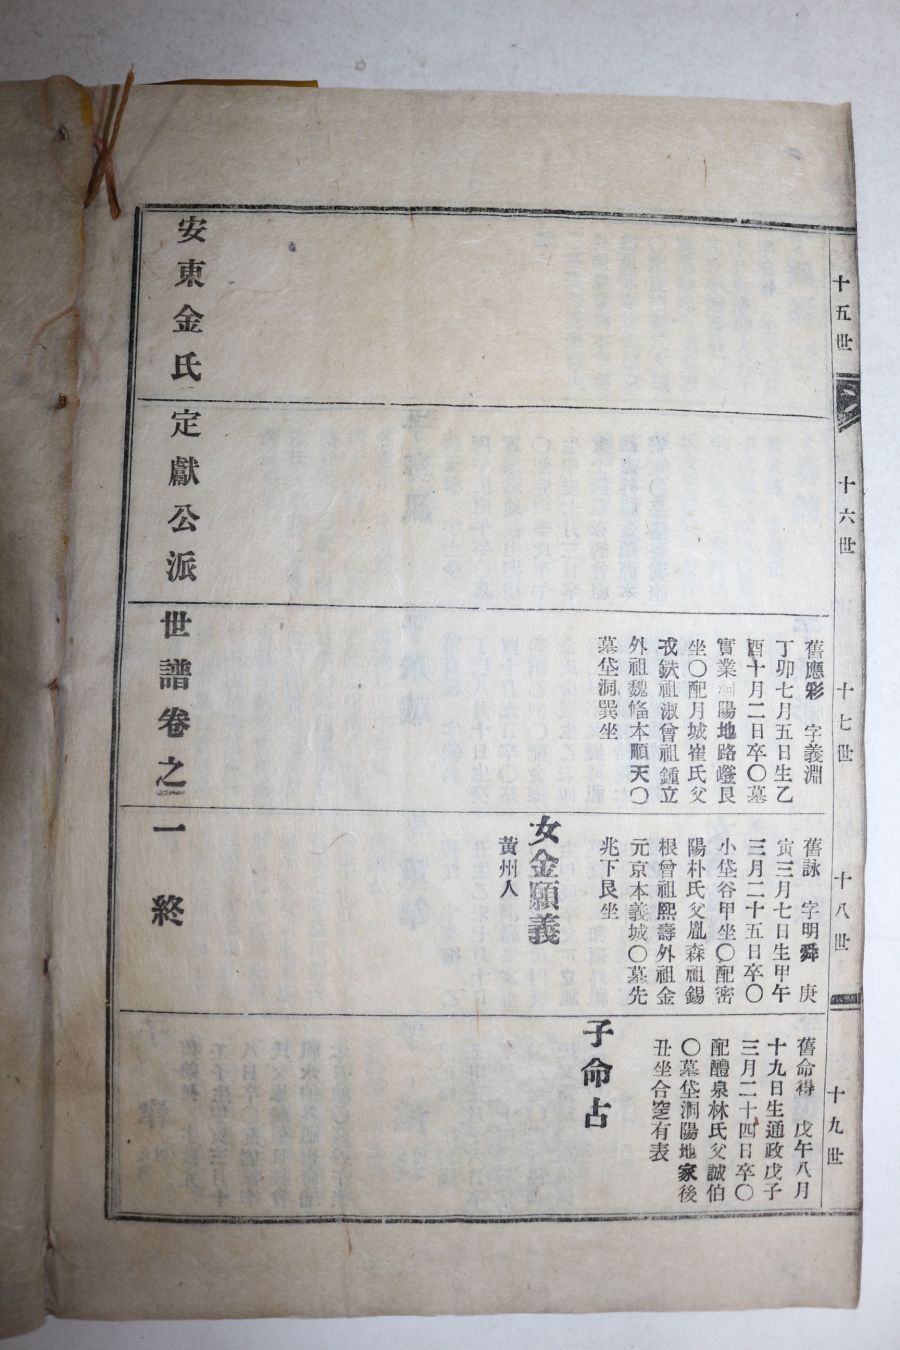 十五世
十六世
十七世
十八世
十九世
舊應彩 字義淵
丁卯七月五日生乙
酉十月二日卒〇墓
實業 陽地路 艮
坐〇配月城崔氏父
戎鈇祖淑曾祖鍾立
外祖魏偹本順天〇
墓垈洞巽坐
舊詠 字明舜 庚
寅三月七日生甲午
三月二十五日卒〇
小垈谷甲坐〇配密
陽朴氏父胤森祖錫
根曾祖熙壽外祖金
元京本義城〇墓先
兆下艮坐
女金願義
黃州人
舊命得 戊午八月
十九日生通政戊子
三月二十四日卒〇
配醴泉林氏父誠伯
〇墓垈洞陽地家後
丑坐合窆有表
子命占
安東金氏定獻公派世譜卷之一 終